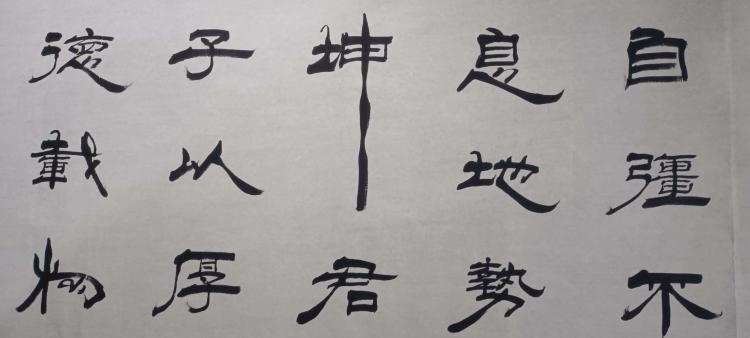 自彊不
息地勢
坤君
子以厚
德載物